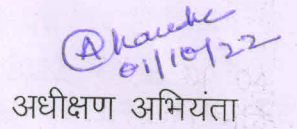 01/10/22
अधीक्षण अभियंता